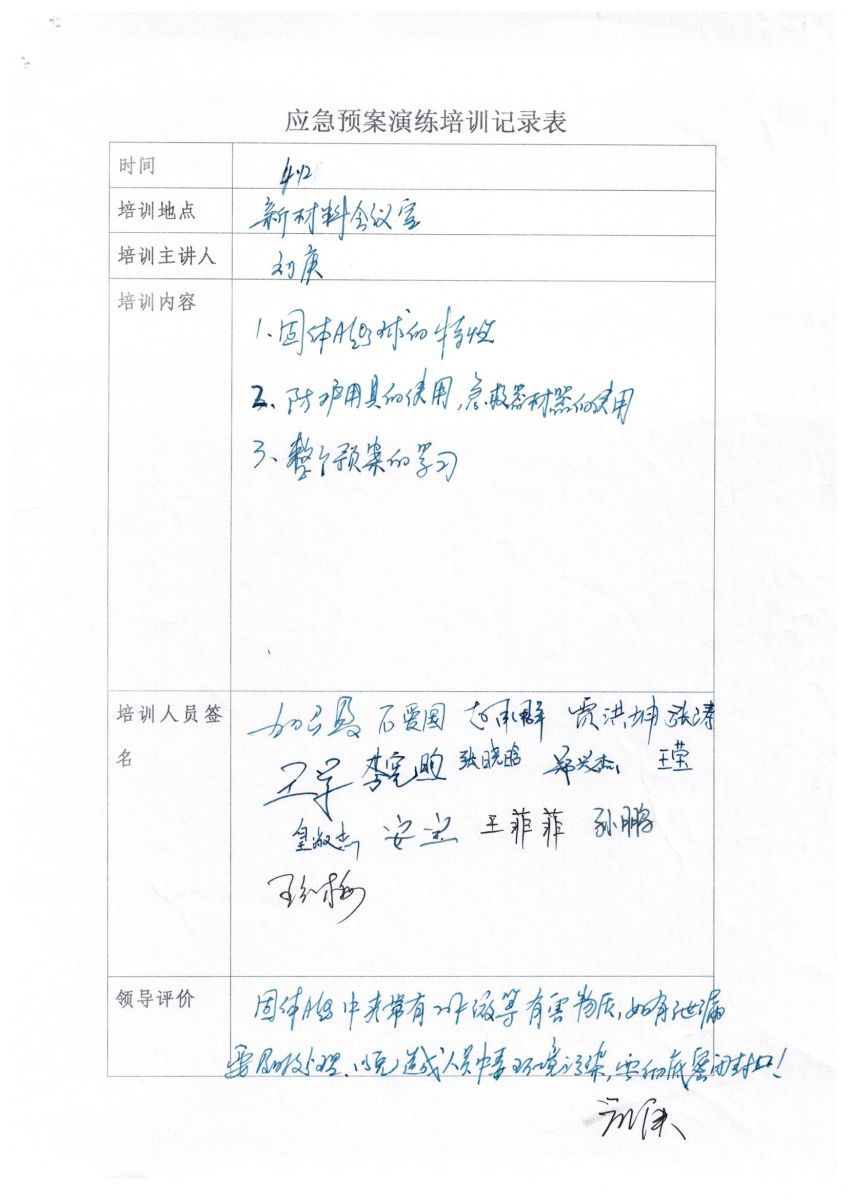 应急预案演练培训记录表
时间
培训地点 新材料会议室
培训主讲人 刘庚
培训内容
1、固体 球的特性
2、防护用具的使用,急救器材器的使用
3、整个预案的学习
培训人员签 石爱国 贾洪坤 张涛
名 李宪 张晓晗 郑兴杰 王莹
皇淑杰 安宝 王菲菲 孙鹏
领导评价 固体 中夹带有 等有害物质,如有泄漏
要及时处理、以免造成人员中毒环境污染,要彻底密闭封口!